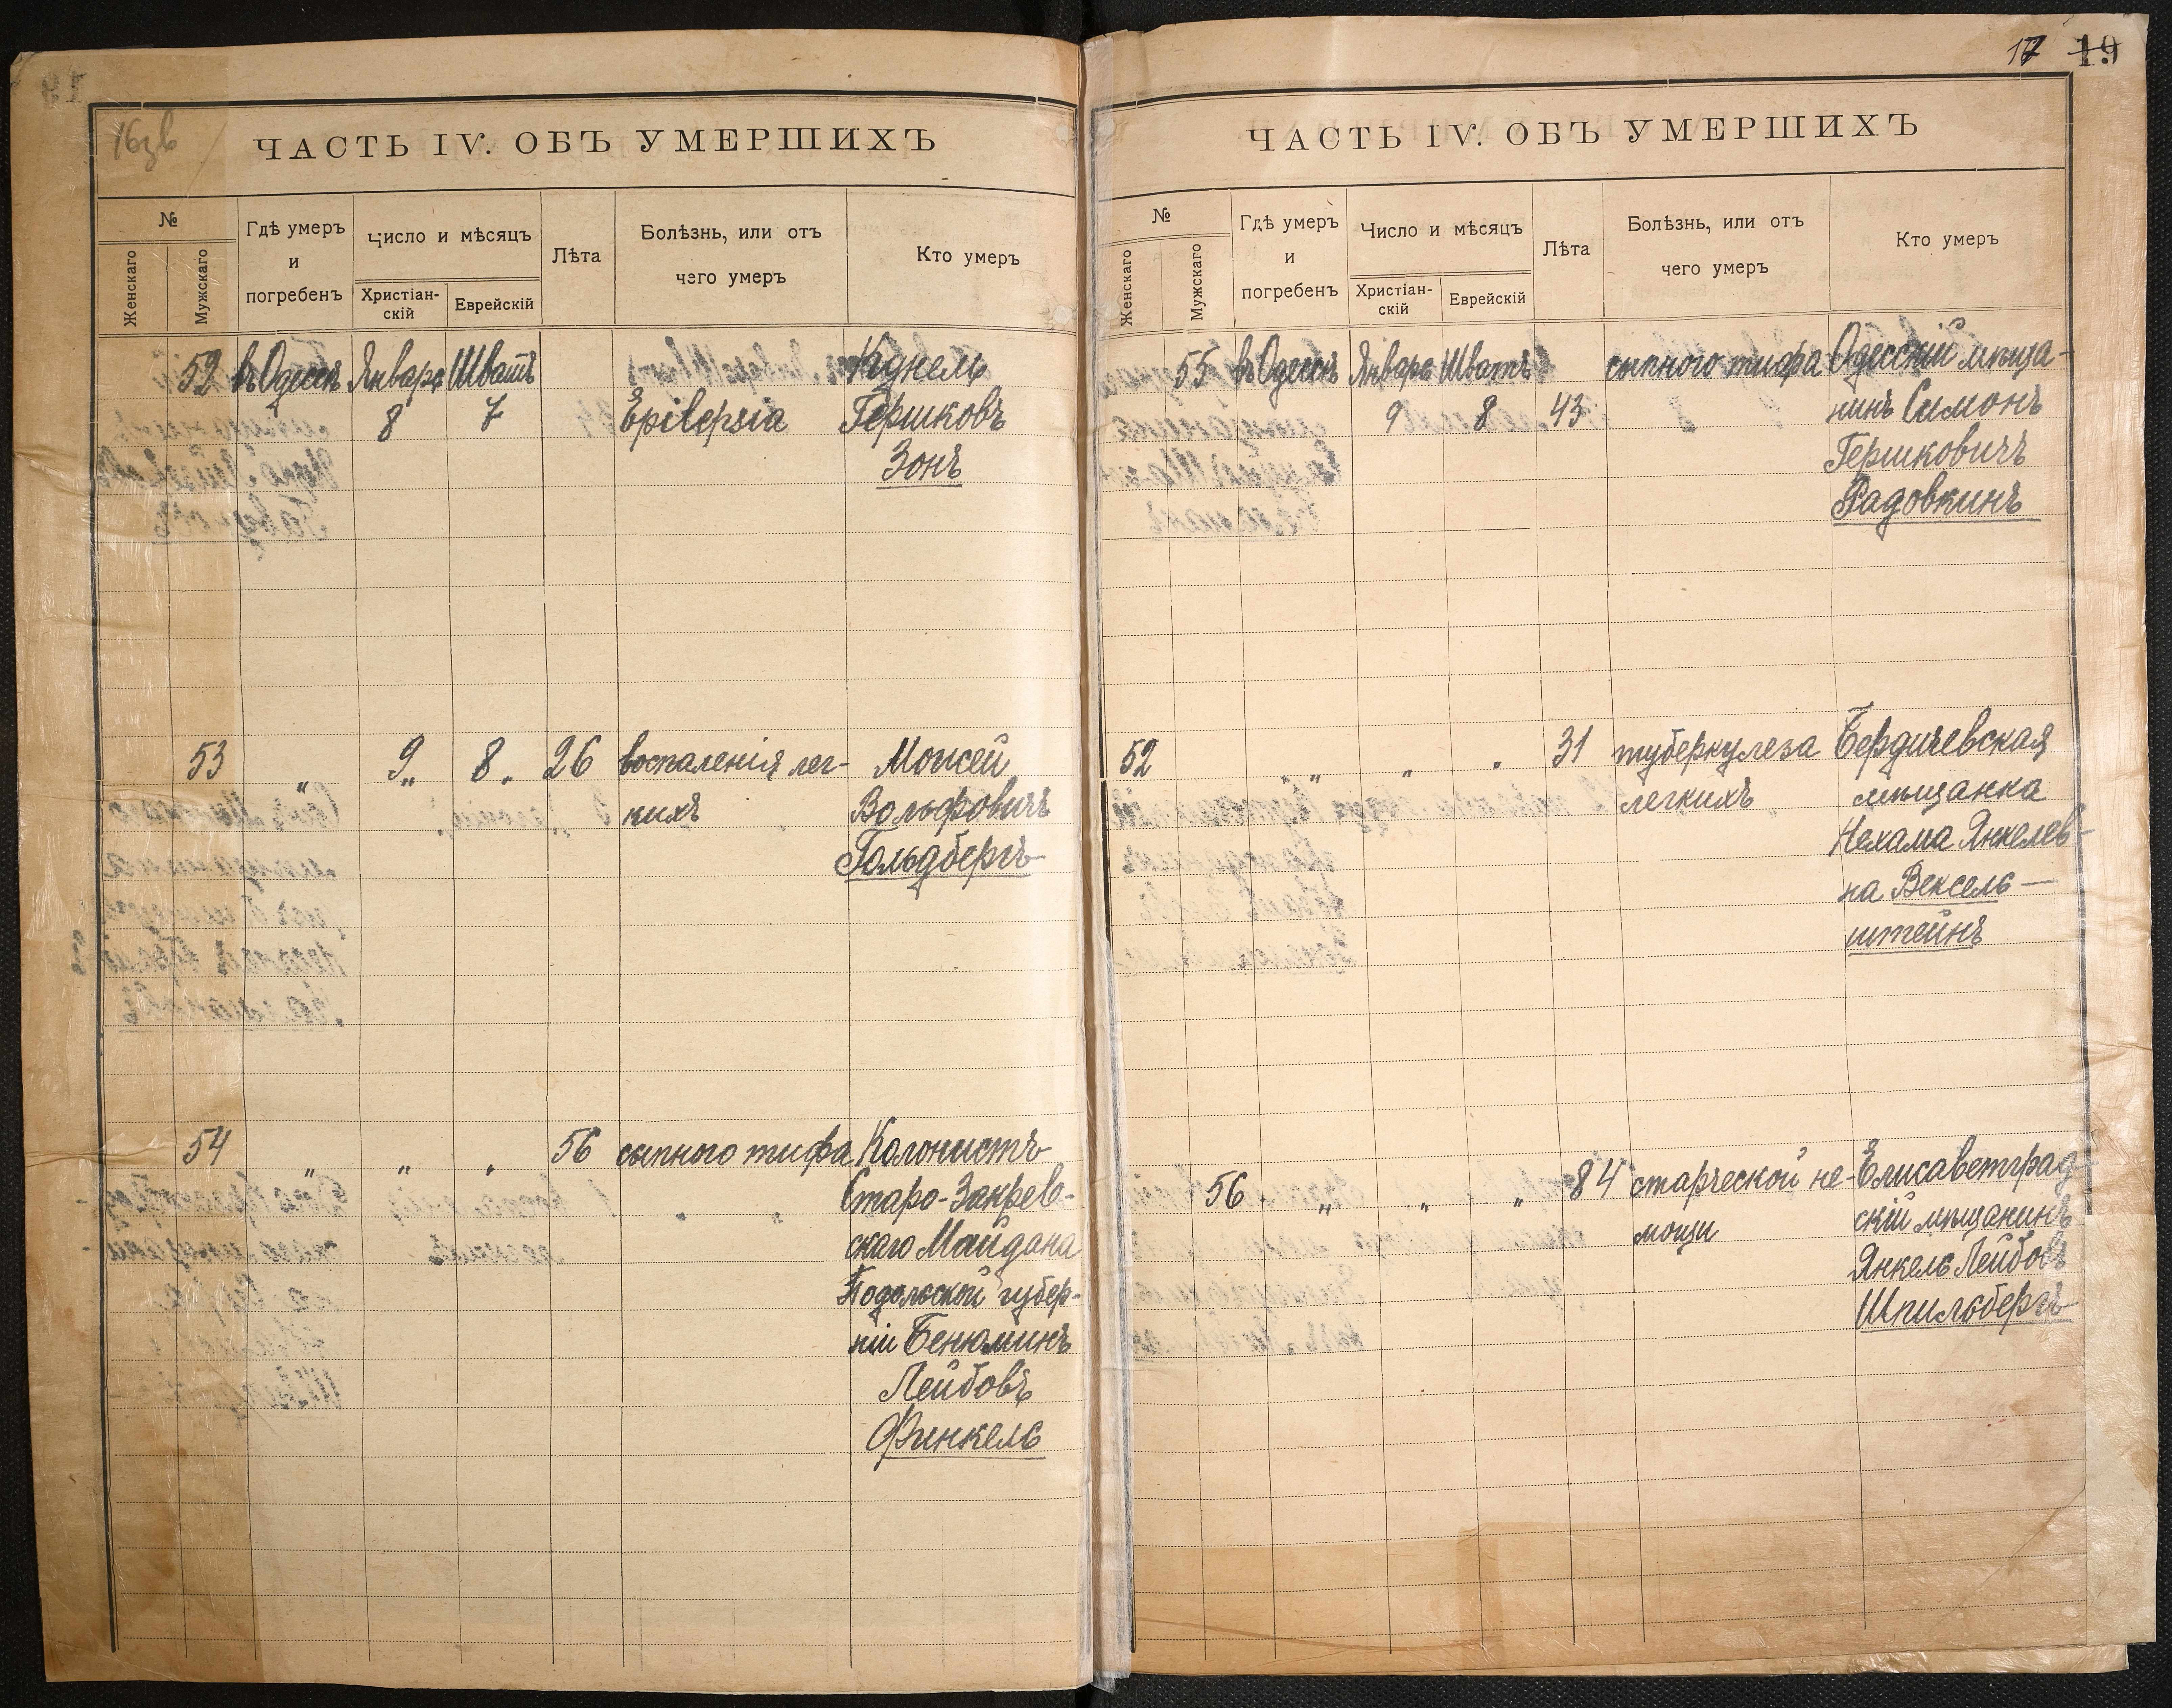 16зв
ЧАСТЬ IV. ОБЪ УМЕРШИХЪ
№
Женскаго
Мужскаго
Гдѣ умеръ
и
погребенъ
Число и мѣсяцъ
Христіан-
скій
Еврейскій
Лѣта
Болѣзнь, или отъ
чего умеръ
Кто умеръ
52 въ Одессѣ Января Шватъ
8 7 Epilepsia Гершковъ
Зонъ
53 " 9 " 8 " 26 воспаленія лег- Мошей
кихъ Вольфовичъ
Гольдбергъ
54 " " " 56 сыпного тифа Колонистъ
Старо-Закрев-
скаго Майдана
Подольской губер-
ніи Бенюминъ
Лейбовъ
Финкель
17 19
ЧАСТЬ IV. ОБЪ УМЕРШИХЪ
№
Женскаго
Мужскаго
Гдѣ умеръ
и
погребенъ
Число и мѣсяцъ
Христіан-
скій
Еврейскій
Лѣта
Болѣзнь, или отъ
чего умеръ
Кто умеръ
55 въ Одессѣ Январь Шватъ сыпного тифа Одесскій мѣща-
9 8 43 нинъ Симонъ
Гершковичъ
Радовкинъ
52 " " " 31 туберкулеза Бердичевская
легкихъ мѣщанка
Нехама Янкелев-
на Вексель-
штейнъ
56 " " " 84 старческой не- Елисаветград-
мощи скій мѣщанинъ
Янкель Лейбовъ
Шпильбергъ